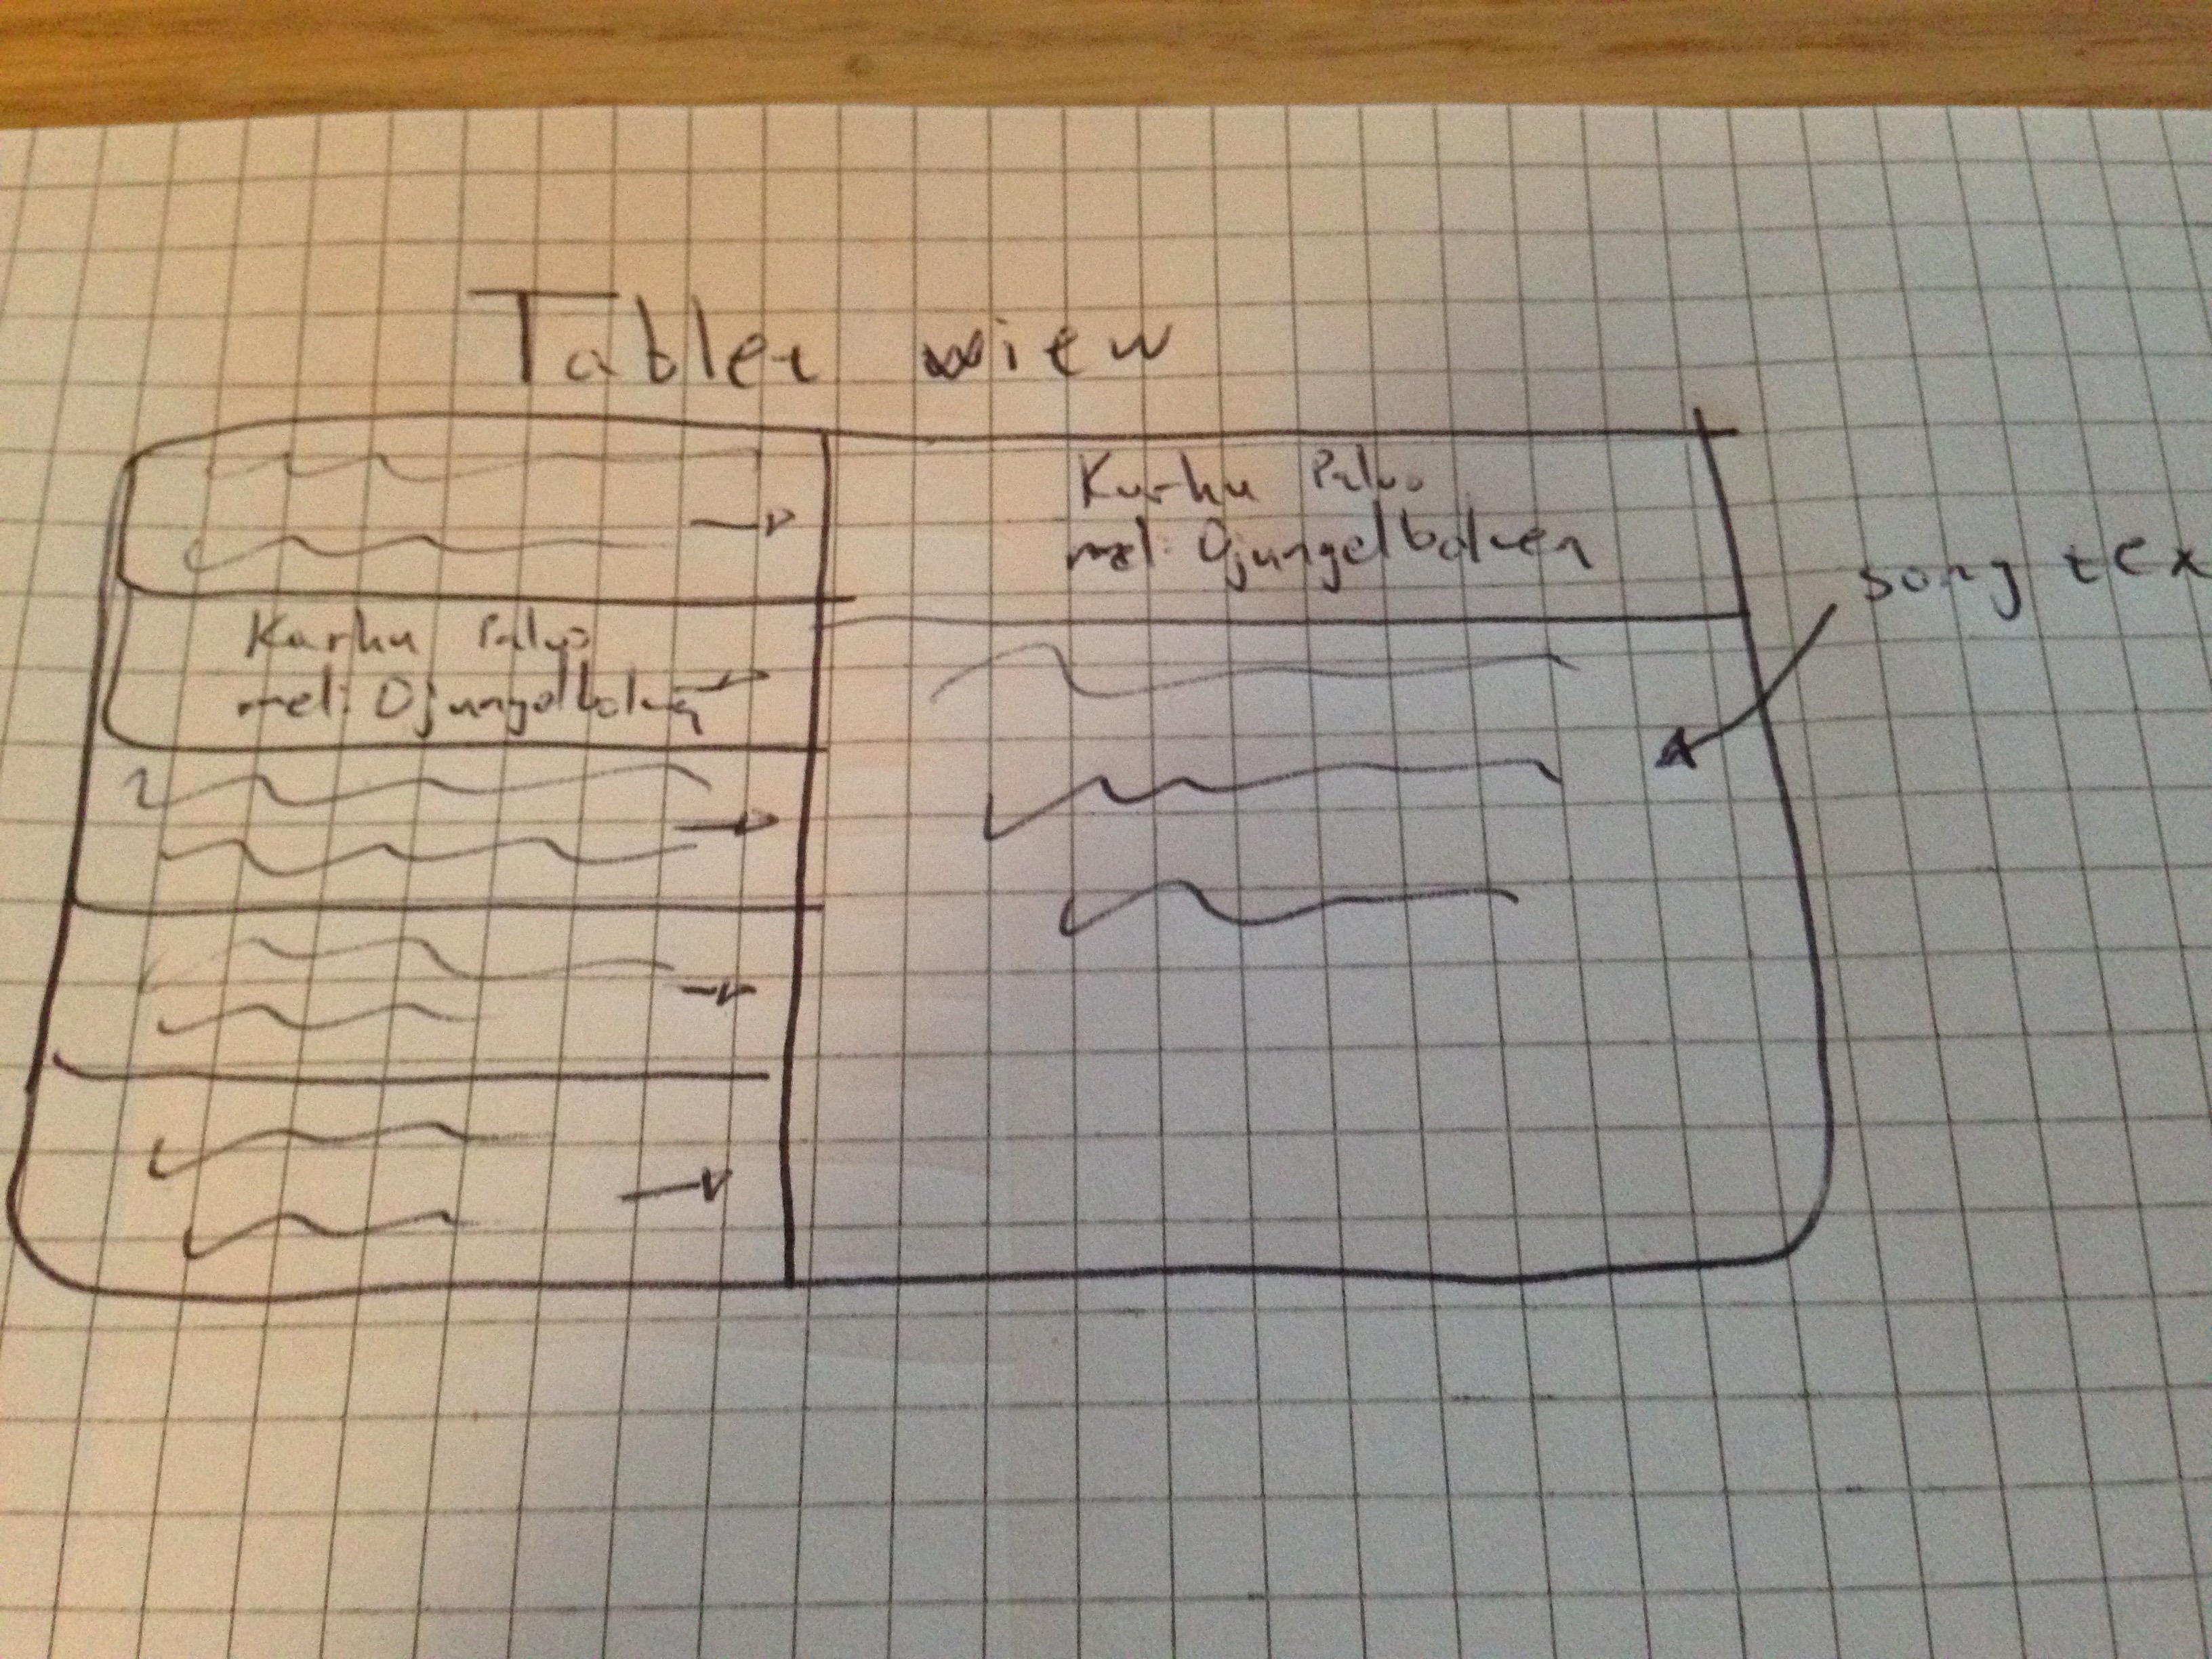 Tablet view
Karhu
mel: Djungelboken
Karhu
mel: Djungelboken
song tex